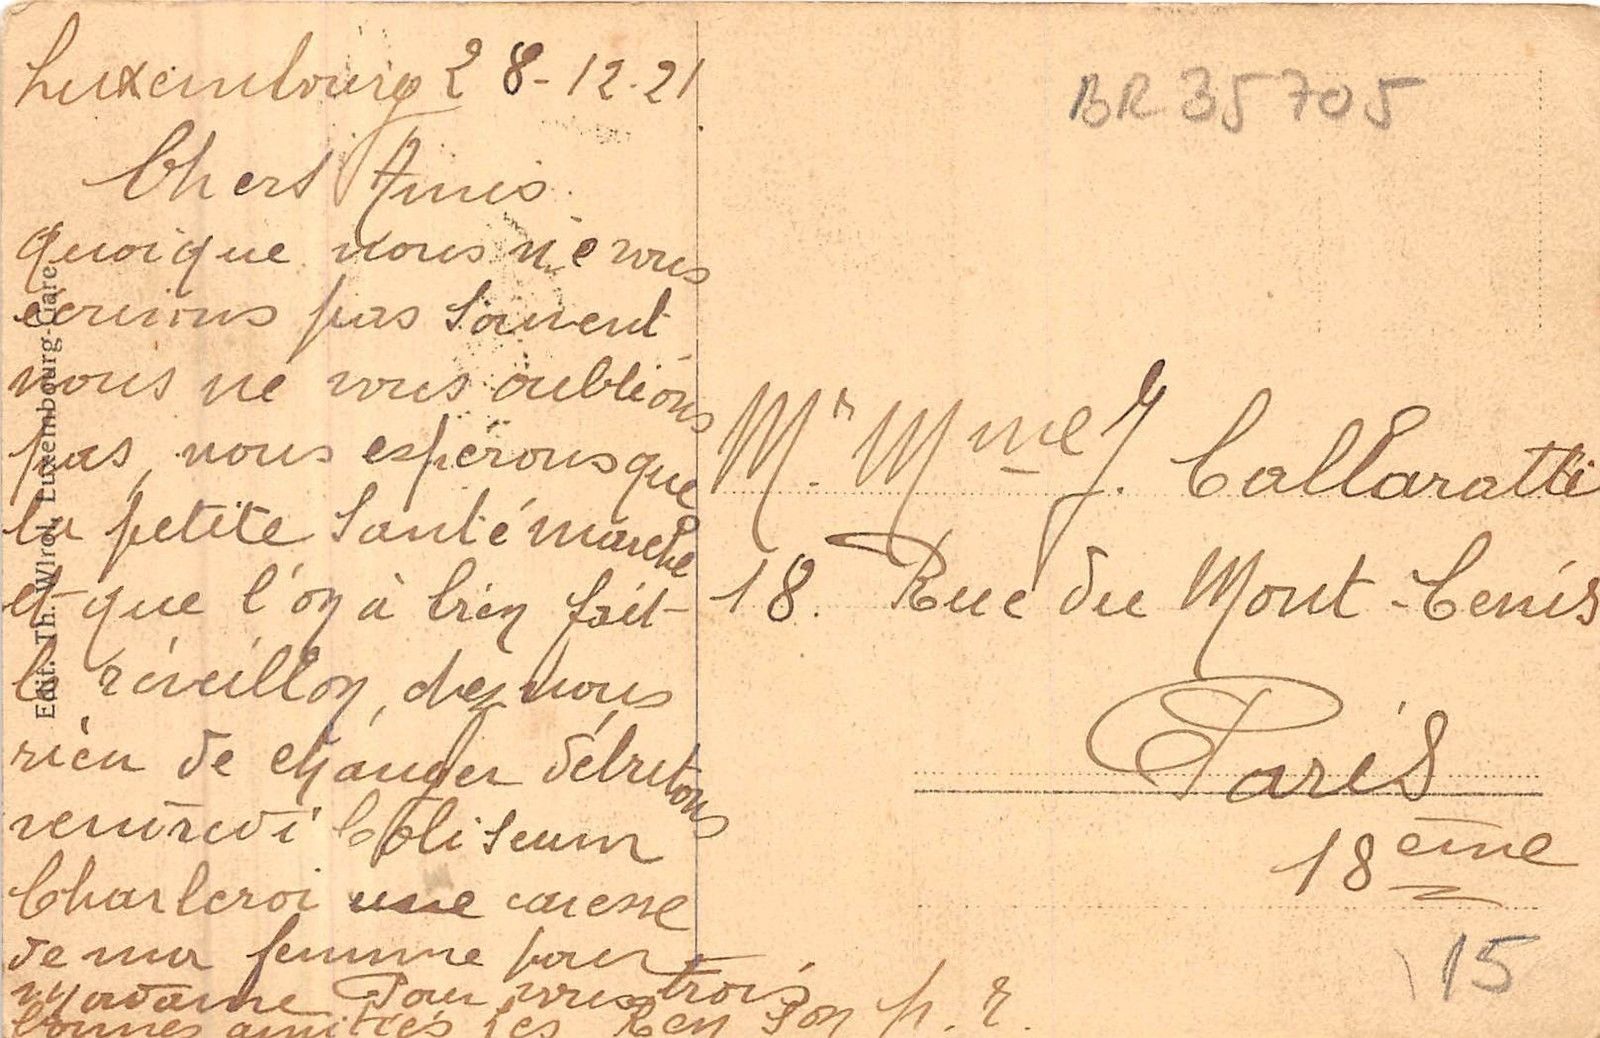 Luxembourg 28-12-21
Chers Amis
quoique nous ne vous
écrivons pas souvent
nous ne vous oublions
pas, nous esperons que
la petite santé marche
et que l'on à bien fait
le réveillon, chez nous
rien de changer débutons
vendredi Coliseum
Charleroi une caresse
de ma femme pour
Madame Pour vous trois
bonnes amitiés les
Edit. Th. Wirol, Luxembourg-Gare
BR 35705
Mr. Mme J. Callaratti
18. Rue du Mont-Cenis
Paris
18ème
15